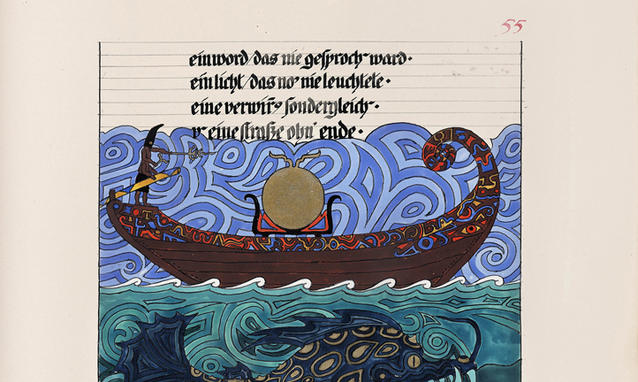 55
ein word/das nie gesproch ward·
ein licht/das no' nie leuchtete·
eine verwirr' sondergleich·
v' eine straße ohn' ende·